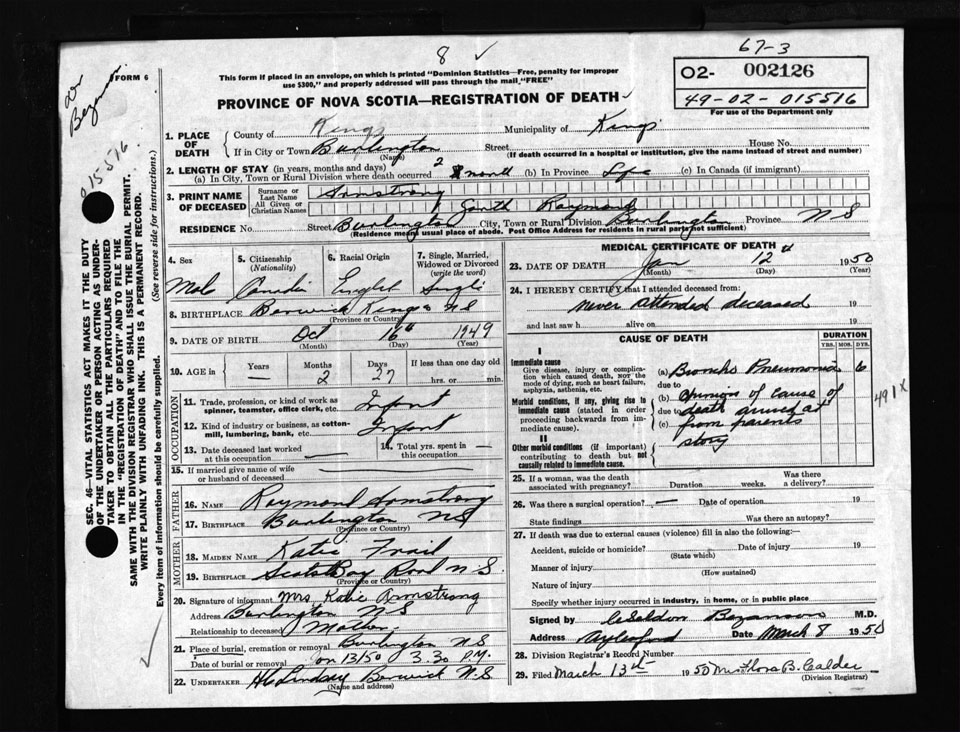 8 ✓
67-3
Dr Bezanson
FORM 6
This form if placed in an envelope, on which is printed "Dominion Statistics—Free, penalty for improper
use $300," and properly addressed will pass through the mail "FREE"
O2- 002126
49-02-015516
For use of the Department only
PROVINCE OF NOVA SCOTIA—REGISTRATION OF DEATH
015516
SEC. 46—VITAL STATISTICS ACT MAKES IT THE DUTY
OF THE UNDERTAKER OR PERSON ACTING AS UNDER-
TAKER TO OBTAIN ALL THE PARTICULARS REQUIRED
IN THE "REGISTRATION OF DEATH" AND TO FILE THE
SAME WITH THE DIVISION REGISTRAR WHO SHALL ISSUE THE BURIAL PERMIT.
WRITE PLAINLY WITH UNFADING INK. THIS IS A PERMANENT RECORD.
Every item of information should be carefully supplied. (See reverse side for instructions.)
1. PLACE OF DEATH
County of Kings Municipality of Kings
If in City or Town Burlington Street House No.
(Name) (If death occurred in a hospital or institution, give the name instead of street and number)
2. LENGTH OF STAY (in years, months and days)
(a) In City, Town or Rural Division where death occurred 2 month (b) In Province Life (c) In Canada (if immigrant)
3. PRINT NAME OF DECEASED
Surname or Last Name Armstrong
All Given or Christian Names Garth Raymond
RESIDENCE No. Street Burlington City, Town or Rural Division Burlington Province N S
(Residence means usual place of abode. Post Office Address for residents in rural parts not sufficient)
4. Sex 5. Citizenship (Nationality) 6. Racial Origin 7. Single, Married, Widowed or Divorced (write the word)
Male Canadian English Single
8. BIRTHPLACE Berwick Kings N S
(Province or Country)
9. DATE OF BIRTH Oct 16 1949
(Month) (Day) (Year)
10. AGE in Years Months Days If less than one day old
— 2 27 hrs. or min.
OCCUPATION
11. Trade, profession, or kind of work as spinner, teamster, office clerk, etc. Infant
12. Kind of industry or business, as cotton-mill, lumbering, bank, etc. Infant
13. Date deceased last worked at this occupation 14. Total yrs. spent in this occupation
15. If married give name of wife or husband of deceased
FATHER
16. Name Raymond Armstrong
17. Birthplace Burlington N S
(Province or Country)
MOTHER
18. Maiden Name Katie Frail
19. Birthplace Scots Bay Road N. S.
(Province or Country)
20. Signature of informant Mrs Katie Armstrong
Address Burlington N S
Relationship to deceased Mother
21. Place of burial, cremation or removal Burlington N. S
Date of burial or removal Jan 13/50 3.30 P.M.
22. UNDERTAKER Lindsay Berwick N. S
(Name and address)
MEDICAL CERTIFICATE OF DEATH
23. DATE OF DEATH Jan 12 1950
(Month) (Day) (Year)
24. I HEREBY CERTIFY that I attended deceased from:
never attended deceased 19
and last saw h alive on 19
CAUSE OF DEATH
DURATION
YRS. MOS. DYS.
I
Immediate cause
Give disease, injury or complication which caused death, not the mode of dying, such as heart failure, asphyxia, asthenia, etc.
Morbid conditions, if any, giving rise to immediate cause (stated in order proceeding backwards from immediate cause).
II
Other morbid conditions (if important) contributing to death but not causally related to immediate cause.
(a) Broncho Pneumonia 6
due to
(b) Opinion of cause of
due to death arrived at
(c) from parents
story
491X
25. If a woman, was the death associated with pregnancy? Duration weeks. Was there a delivery?
26. Was there a surgical operation? — Date of operation 19
State findings Was there an autopsy?
27. If death was due to external causes (violence) fill in also the following:—
Accident, suicide or homicide? Date of injury 19
(State which)
Manner of injury
(How sustained)
Nature of injury
Specify whether injury occurred in industry, in home, or in public place
Signed by Bezanson M.D.
Address Aylesford Date March 8 1950
28. Division Registrar's Record Number
29. Filed March 13th 1950 Mrs Flora B. Calder
(Division Registrar)